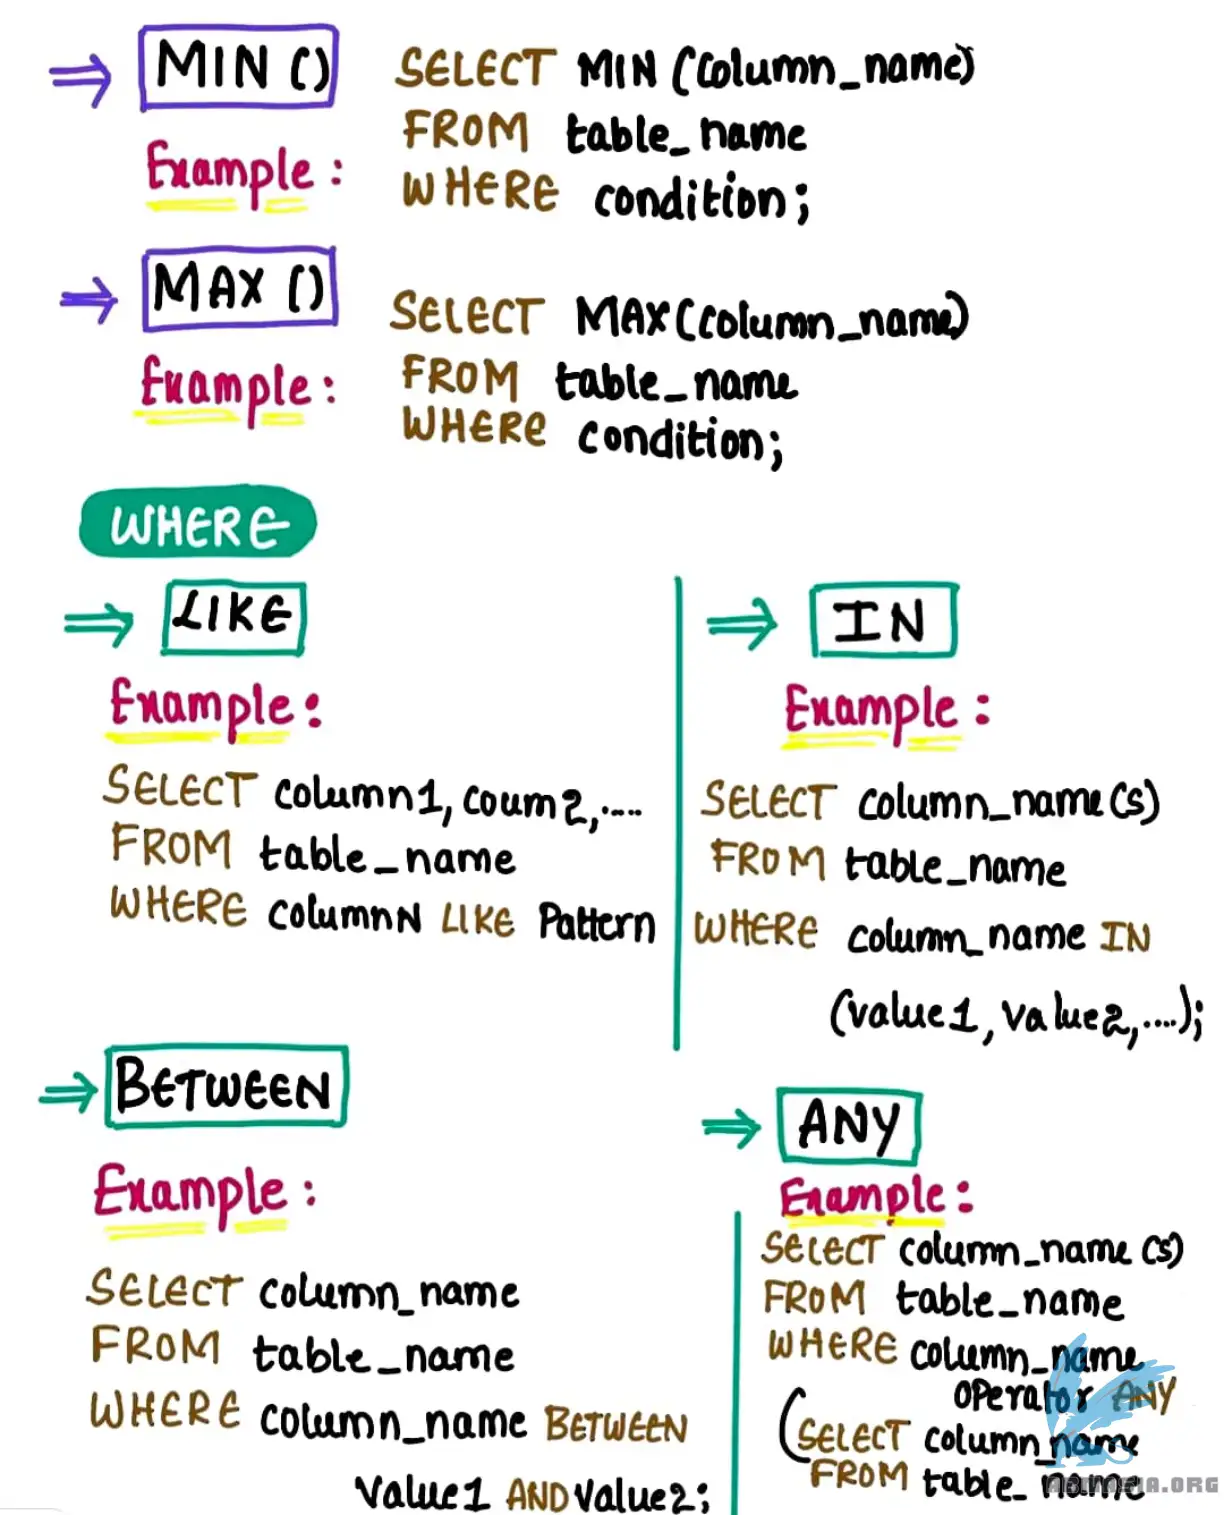 ⇒ MIN ()
SELECT MIN (column_name)
FROM table_name
WHERE condition;
Example :
⇒ MAX ()
SELECT MAX(column_name)
FROM table_name
WHERE condition;
Example :
WHERE
⇒ LIKE
Example :
SELECT column1, coum2,....
FROM table_name
WHERE columnN LIKE Pattern
⇒ IN
Example :
SELECT column_name(s)
FROM table_name
WHERE column_name IN
(value1, value2,....);
⇒ BETWEEN
Example :
SELECT column_name
FROM table_name
WHERE column_name BETWEEN
value1 AND value2;
⇒ ANY
Example :
SELECT column_name(s)
FROM table_name
WHERE column_name
operator ANY
(SELECT column_name
FROM table_name
ABMASIA.ORG